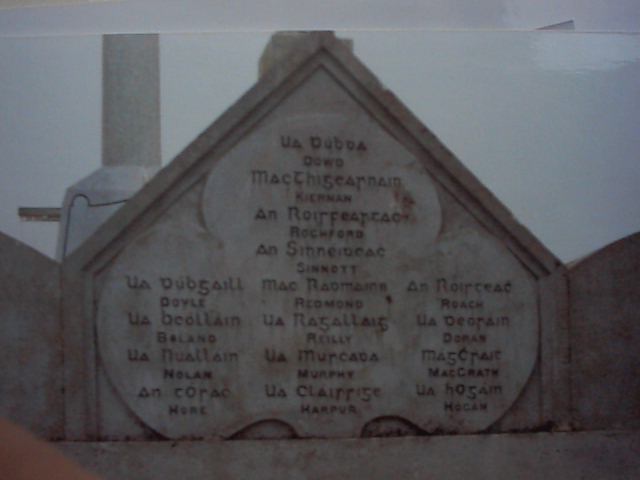 Ua Dubda
Dowd
MacThigearnain
Kiernan
An Roirfeartac
Rochford
An Sinneidcac
Sinnott
Ua Dubgaill Mac Radmainn An Roirteac
Doyle Redmond Roach
Ua beollain Ua Ragallaig Ua Deorain
Boland Reilly Doran
Ua Nuallain Ua Murcada MagCrait
Nolan Murphy MacGrath
An córac Ua Clairrige Ua hOgain
Hore Harpur Hogan